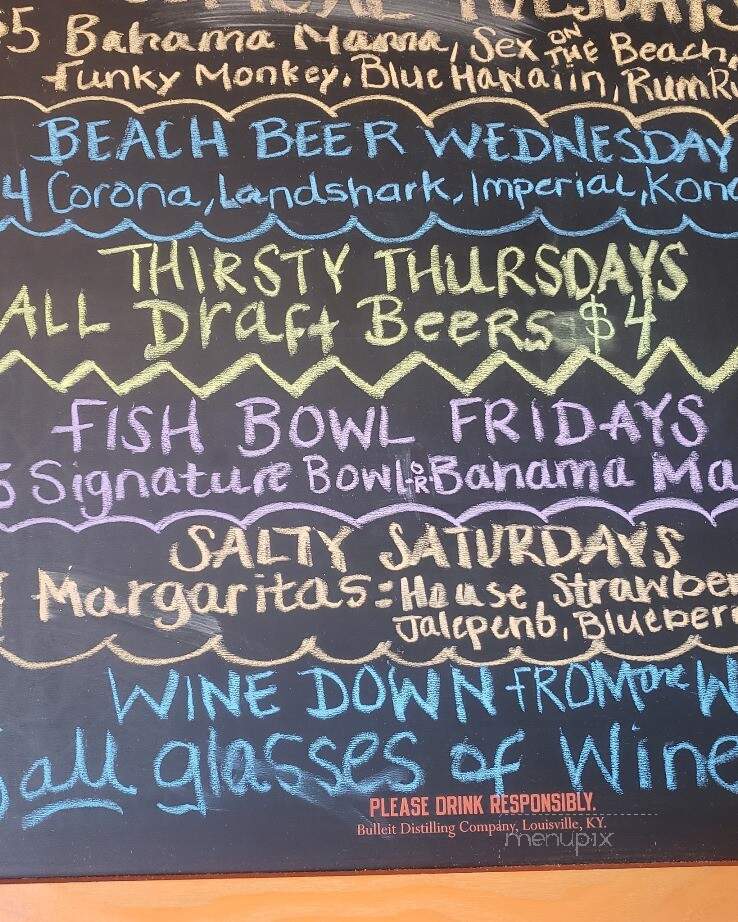 TUESDAYS
$5 Bahama Mama, Sex ON THE Beach,
Funky Monkey, Blue Hawaiin, Rum Ru
BEACH BEER WEDNESDAY
4 Corona, Landshark, Imperial, Kona
THIRSTY THURSDAYS
ALL Draft Beers $4
FISH BOWL FRIDAYS
5 Signature Bowl OR Bahama Ma
SALTY SATURDAYS
Margaritas: House Strawber
Jalepeno, Blueberr
WINE DOWN FROM the W
all glasses of Wine
PLEASE DRINK RESPONSIBLY.
Bulleit Distilling Company, Louisville, KY.
menupix